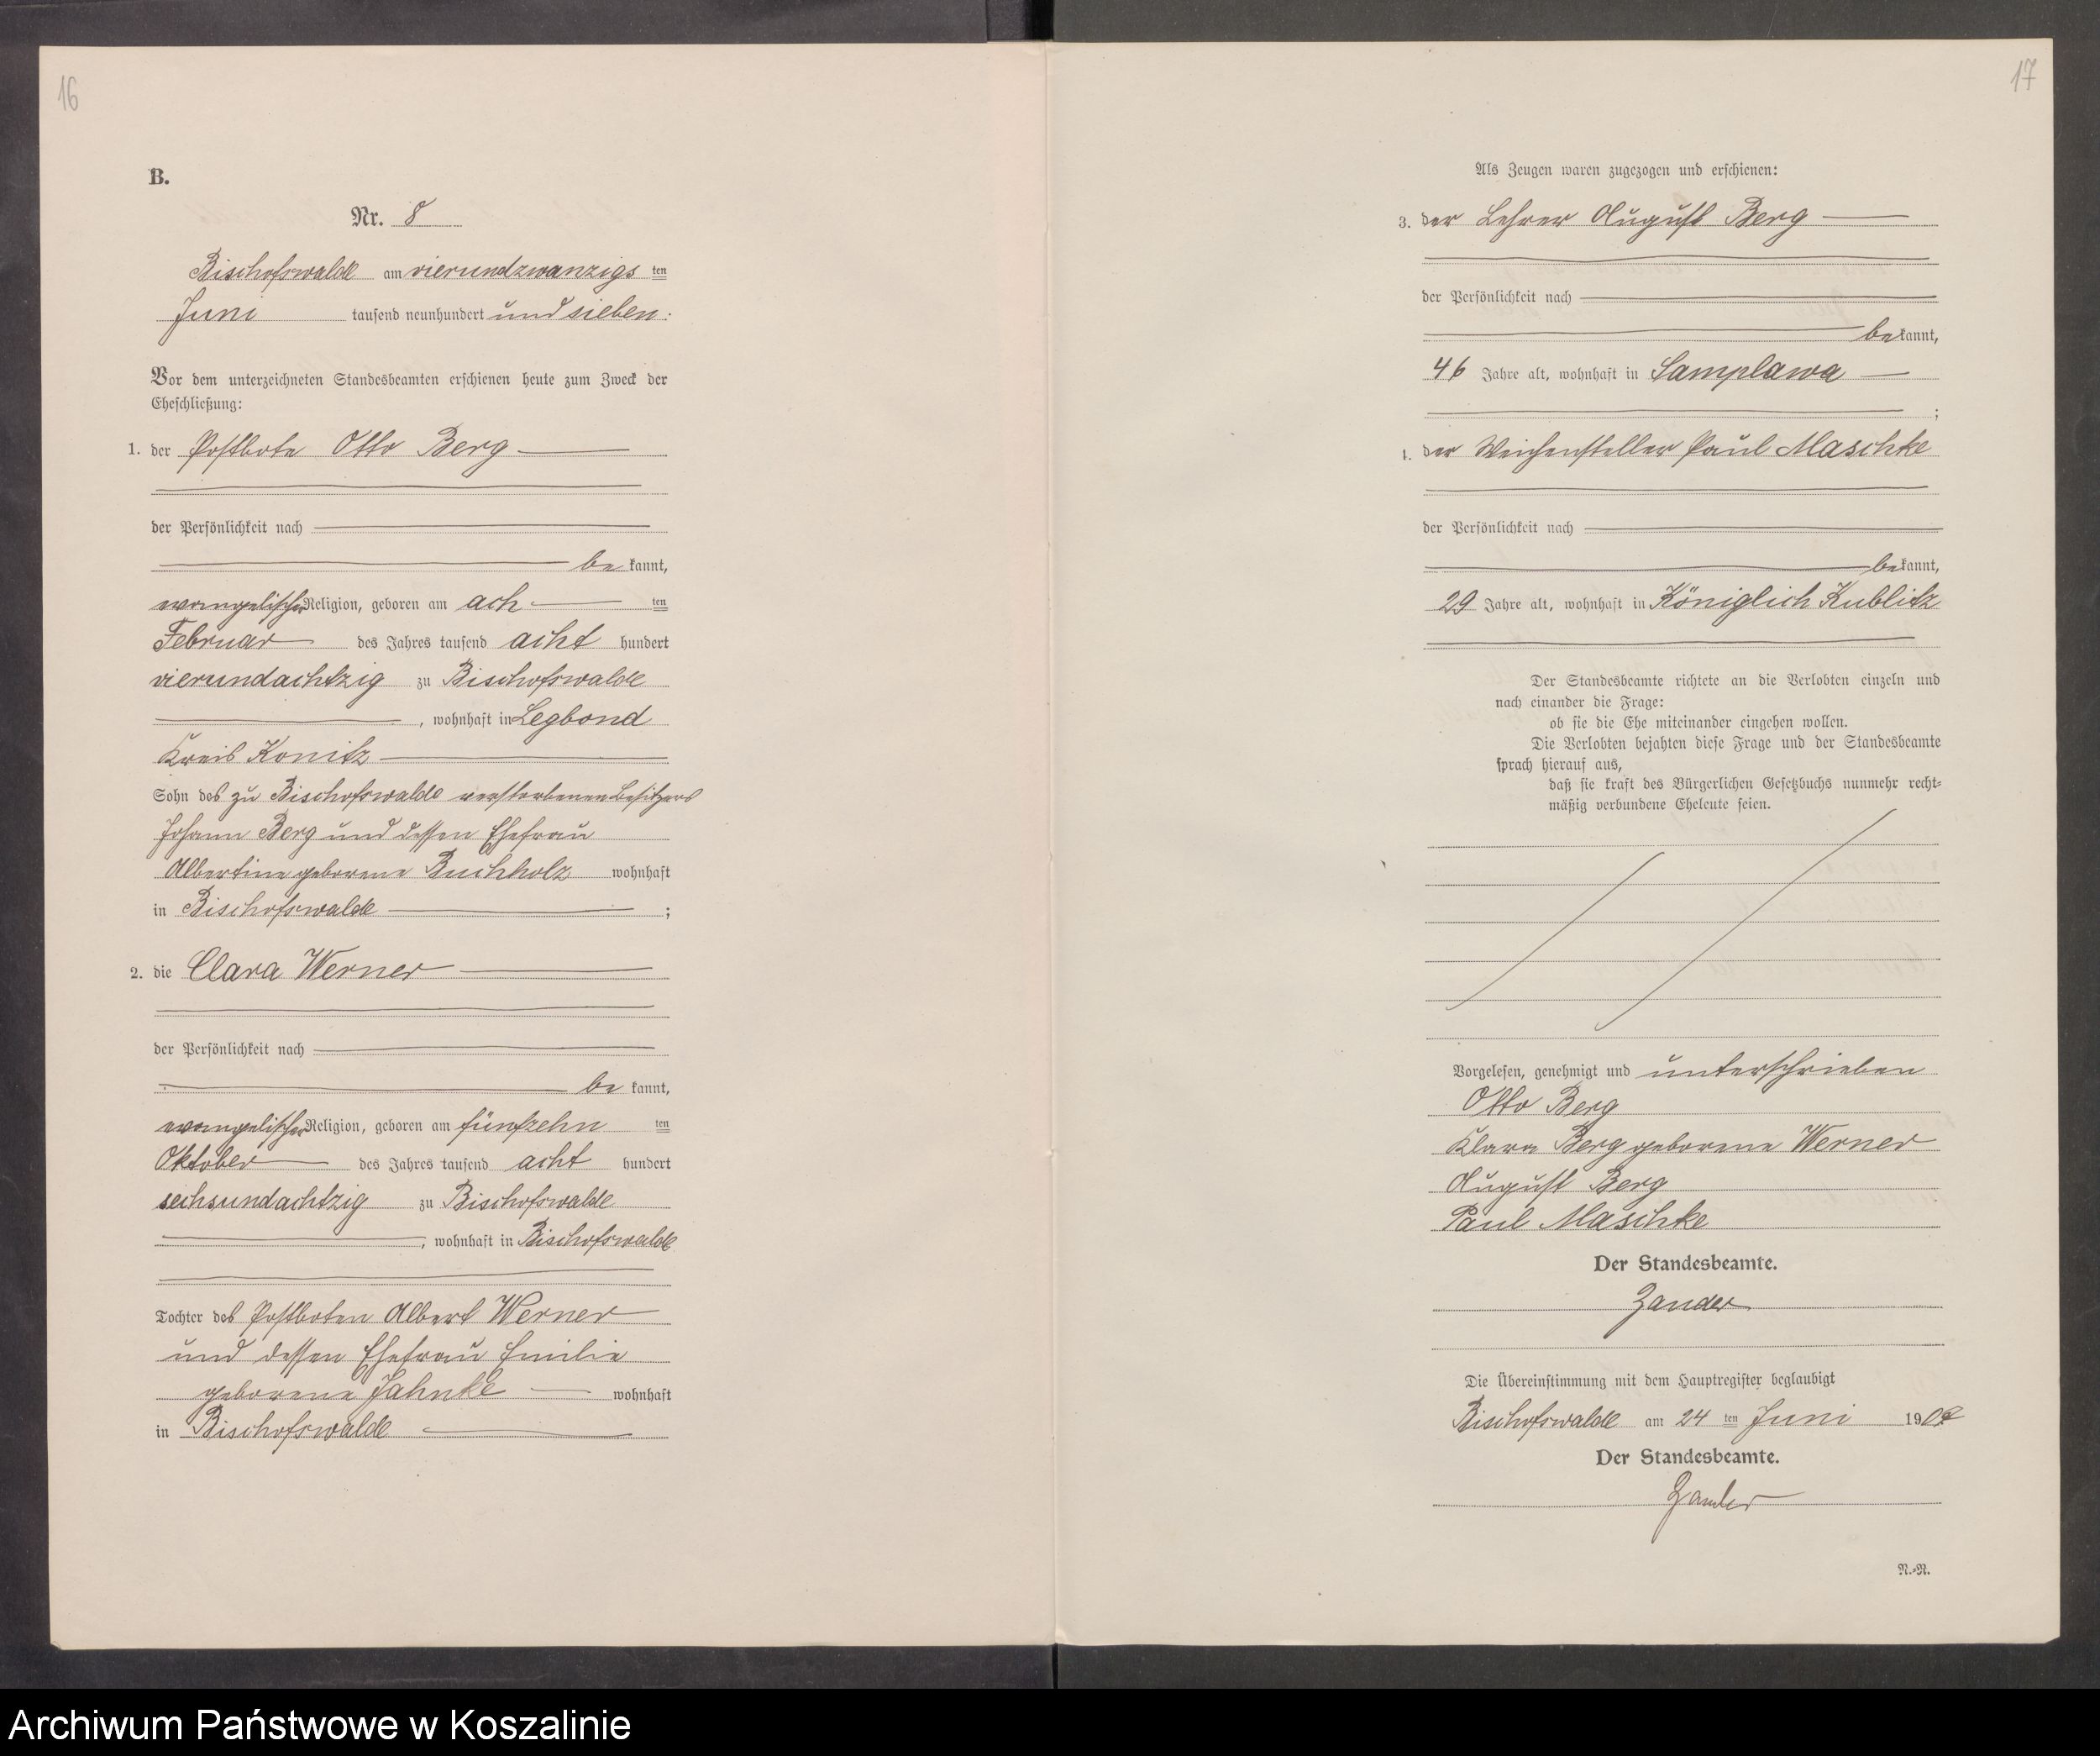 16
B.
Nr. 8
Bischofswalde am vierundzwanzigs ten
Juni tausend neunhundert und sieben.
Vor dem unterzeichneten Standesbeamten erschienen heute zum Zweck der
Eheschließung:
1. der Postbote Otto Berg
der Persönlichkeit nach
be kannt,
evangelischer Religion, geboren am ach ten
Februar des Jahres tausend acht hundert
vierundachtzig zu Bischofswalde
, wohnhaft in Legbond
Kreis Konitz
Sohn des zu Bischofswalde verstorbenen Besitzers
Johann Berg und dessen Ehefrau
Albertine geborene Buchholz wohnhaft
in Bischofswalde ;
2. die Clara Werner
der Persönlichkeit nach
be kannt,
evangelischer Religion, geboren am fünfzehn ten
Oktober des Jahres tausend acht hundert
sechsundachtzig zu Bischofswalde
, wohnhaft in Bischofswalde
Tochter des Postboten Albert Werner
und dessen Ehefrau Emilie
geborene Jahnke wohnhaft
in Bischofswalde
17
Als Zeugen waren zugezogen und erschienen:
3. der Lehrer August Berg
der Persönlichkeit nach
bekannt,
46 Jahre alt, wohnhaft in Samplawa
;
4. der Weichensteller Paul Maschke
der Persönlichkeit nach
bekannt,
29 Jahre alt, wohnhaft in Königlich Kublitz
Der Standesbeamte richtete an die Verlobten einzeln und
nach einander die Frage:
ob sie die Ehe miteinander eingehen wollen.
Die Verlobten bejahten diese Frage und der Standesbeamte
sprach hierauf aus,
daß sie kraft des Bürgerlichen Gesetzbuchs nunmehr recht-
mäßig verbundene Eheleute seien.
Vorgelesen, genehmigt und unterschrieben
Otto Berg
Klara Berg geborene Werner
August Berg
Paul Maschke
Der Standesbeamte.
Zander
Die Übereinstimmung mit dem Hauptregister beglaubigt
Bischofswalde am 24 ten Juni 1907
Der Standesbeamte.
Zander
N.-R.
Archiwum Państwowe w Koszalinie